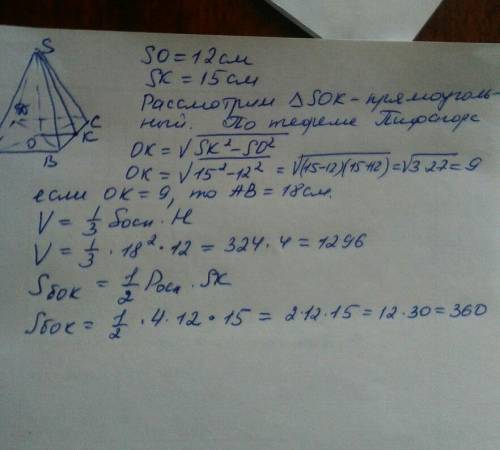 S
O
B
C
K
SO = 12 см
SK = 15 см
Рассмотрим △SOK - прямоуголь-
ный. По теореме Пифагора
OK = √SK² - SO²
OK = √15² - 12² = √(15-12)(15+12) = √3·27 = 9
если OK = 9, то AB = 18 см.
V = 1/3 Sосн · H
V = 1/3 · 18² · 12 = 324 · 4 = 1296
Sбок = 1/2 Pосн · SK
Sбок = 1/2 · 4 · 12 · 15 = 2·12·15 = 12·30 = 360